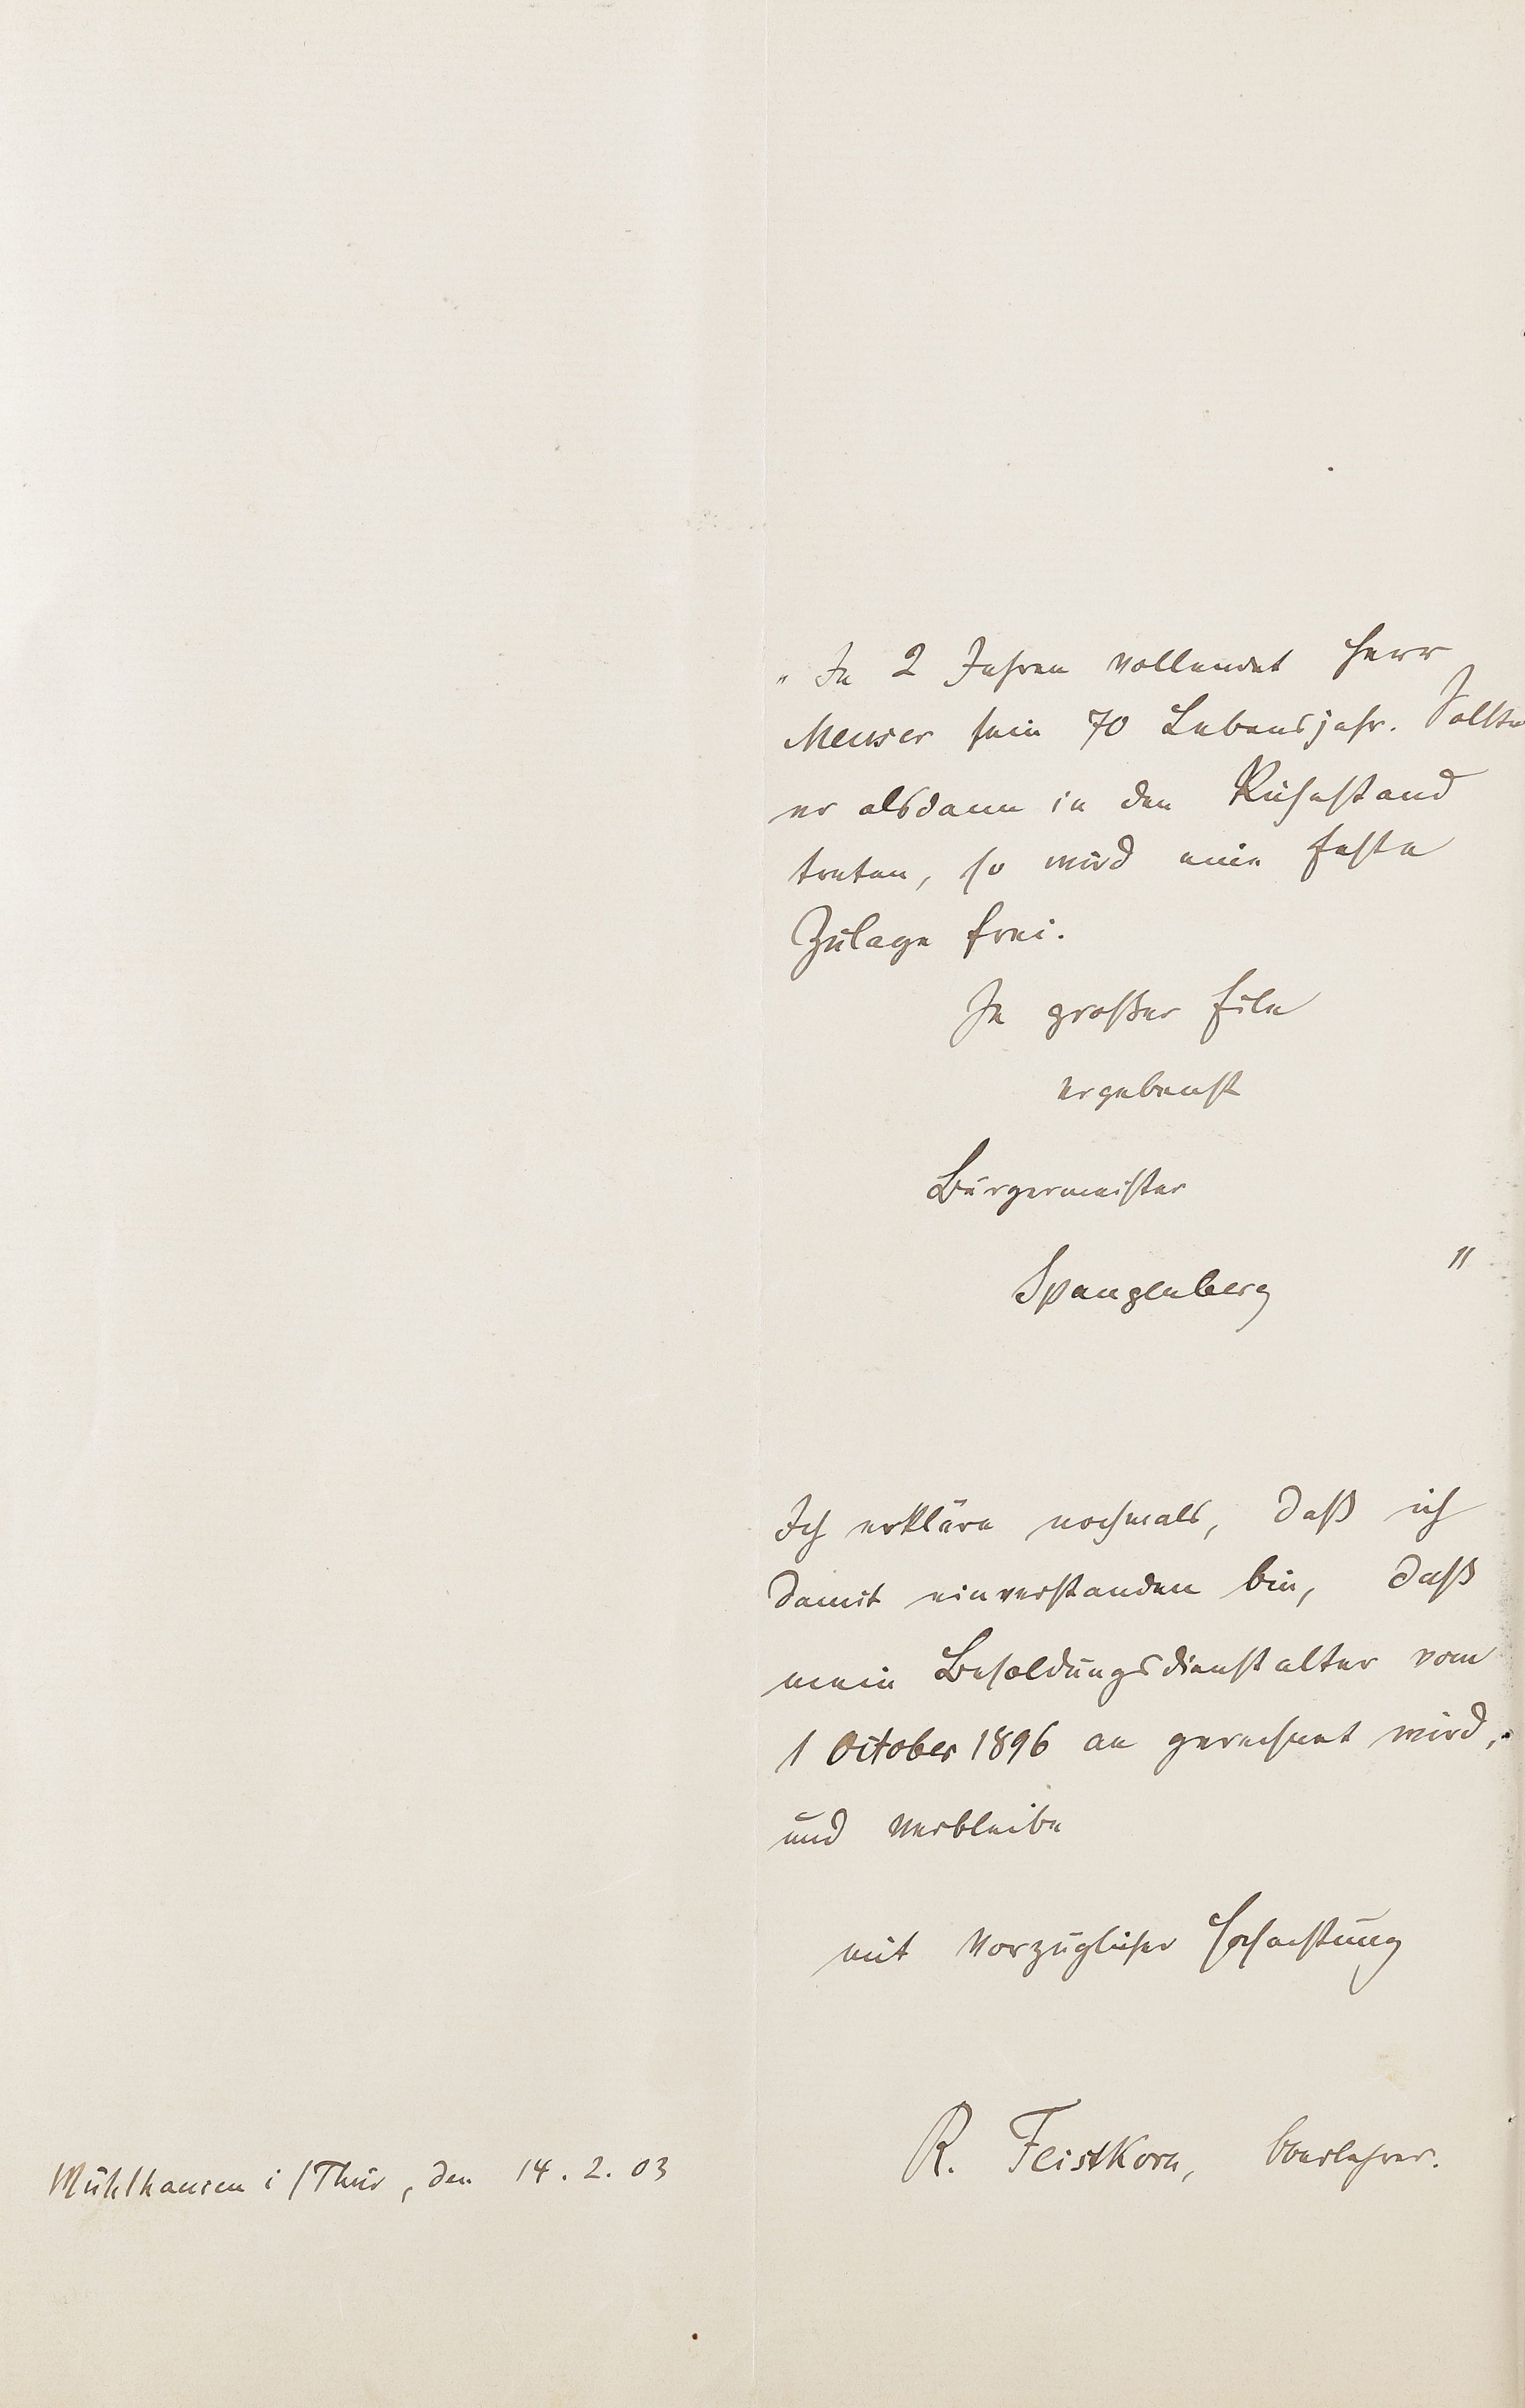 „In 2 Jahren vollendet Herr
Meuser sein 70 Lebensjahr. Sollte
er alsdann in den Ruhestand
treten, so wird eine feste
Zulage frei.
In großer Eile
ergebenst
Bürgermeister
Spangenberg "
Ich erkläre nochmals, daß ich
damit einverstanden bin, daß
mein Besoldungsdienstalter vom
1 October 1896 an gerechnet wird,
und verbleibe
mit vorzüglicher Hochachtung
R. Feistkorn, Oberlehrer.
Mühlhausen i/Thür, den 14.2.03